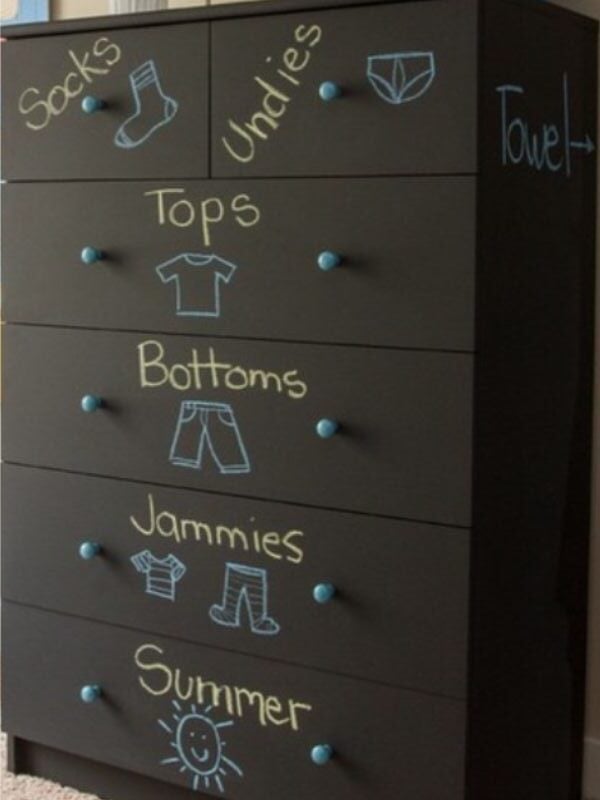 Socks
Undies
Towel
Tops
Bottoms
Jammies
Summer